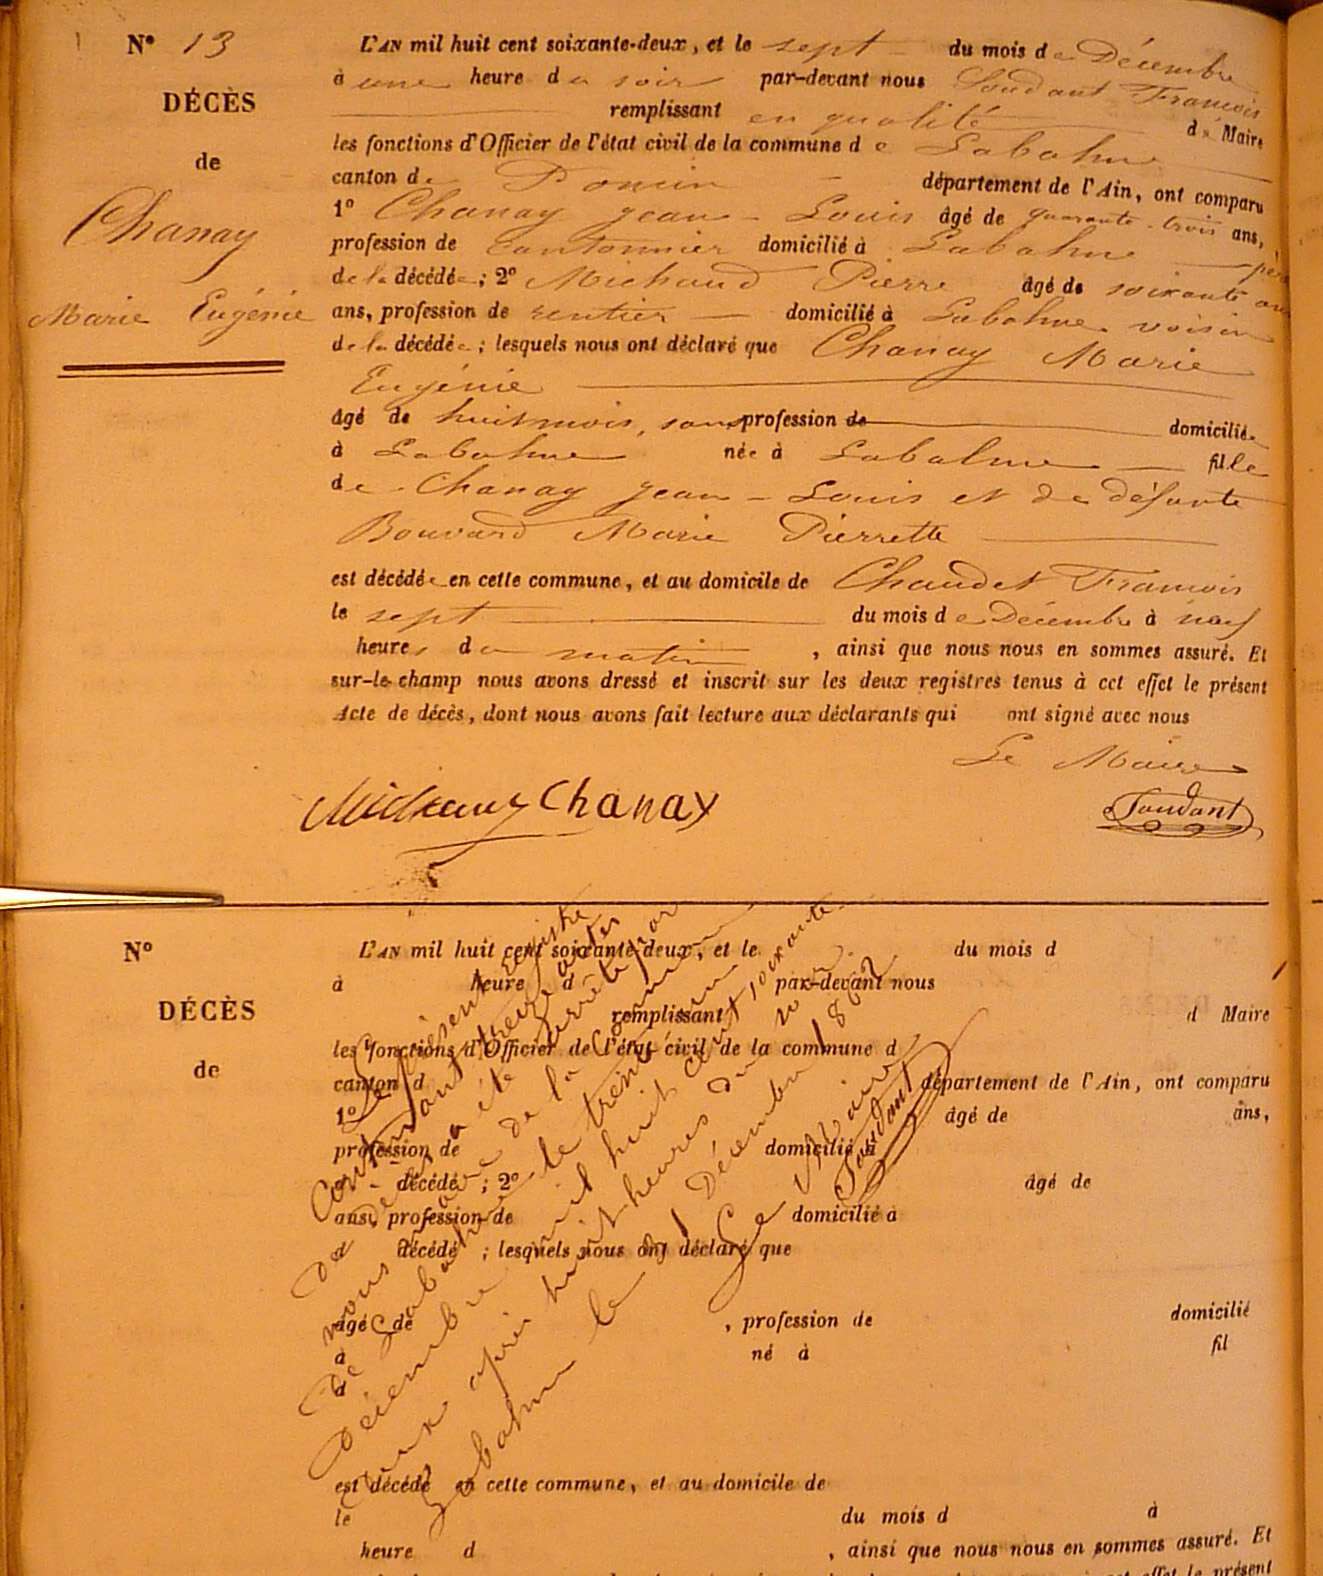 N° 13
DÉCÈS
de
Chanay
Marie Eugénie
L'AN mil huit cent soixante-deux, et le sept du mois de Décembre
à une heure du soir par-devant nous Soudant François
remplissant en qualité de Maire
les fonctions d'Officier de l'état civil de la commune de Labalme
canton de Poncin département de l'Ain, ont comparu
1° Chanay Jean-Louis âgé de quarante-trois ans,
profession de cantonnier domicilié à Labalme père
de la décédée ; 2° Michaud Pierre âgé de soixante ans
ans, profession de rentier domicilié à Labalme voisin
de la décédée ; lesquels nous ont déclaré que Chanay Marie
Eugénie
âgé de huit mois, sans profession de domiciliée
à Labalme née à Labalme fille
de Chanay Jean-Louis et de défunte
Bouvard Marie Pierrette
est décédée en cette commune, et au domicile de Chaudet François
le sept du mois de Décembre à neuf
heures du matin, ainsi que nous nous en sommes assuré. Et
sur-le-champ nous avons dressé et inscrit sur les deux registres tenus à cet effet le présent
Acte de décès, dont nous avons fait lecture aux déclarants qui ont signé avec nous
Le Maire
Chanay
Soudant
N°
DÉCÈS
de
L'AN mil huit cent soixante-deux, et le du mois d
à heure d par-devant nous
remplissant d Maire
les fonctions d'Officier de l'état civil de la commune d
canton d département de l'Ain, ont comparu
1° âgé de ans,
profession de domicilié à
d décédé ; 2° âgé de
ans, profession de domicilié à
d décédé ; lesquels nous ont déclaré que
âgé de , profession de domicilié
à né à fil
d
est décédé en cette commune, et au domicile de
le du mois d à
heure d , ainsi que nous nous en sommes assuré. Et
Le présent registre
contenant treize actes
de décès a été arrêté par
nous maire de la commune
de Labalme le trente un
Décembre mil huit cent soixante
deux après huit heures du soir
Labalme le 31 Décembre 1862
Le Maire
Soudant